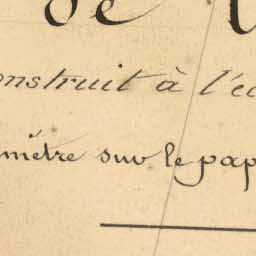 de
onstruit à l'éc
mètre sur le pap